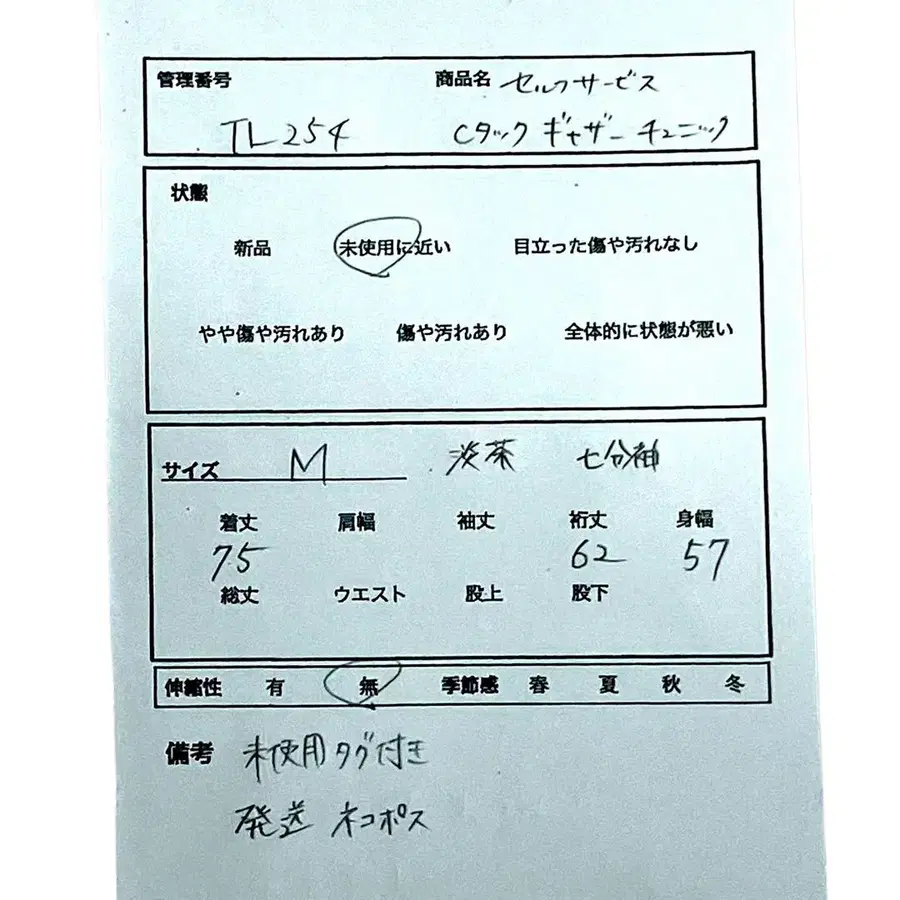 管理番号 商品名 セルフサービス
TL254 Cタック ギャザーチュニック
状態
新品 未使用に近い 目立った傷や汚れなし
やや傷や汚れあり 傷や汚れあり 全体的に状態が悪い
サイズ M 淡茶 七分袖
着丈 肩幅 袖丈 裄丈 身幅
75 62 57
総丈 ウエスト 股上 股下
伸縮性 有 無 季節感 春 夏 秋 冬
備考 未使用タグ付き
発送 ネコポス